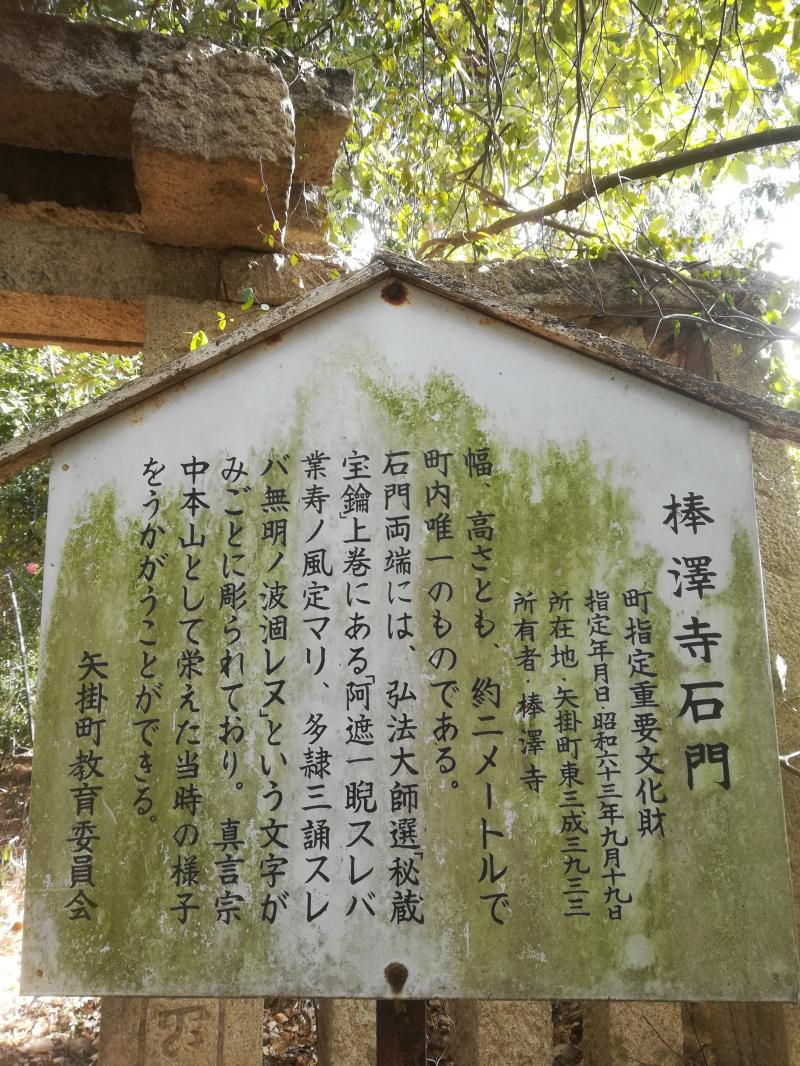 捧澤寺石門
町指定重要文化財
指定年月日・昭和六十三年九月十九日
所在地・矢掛町東三成三九三三
所有者・捧澤寺
幅、高さとも、約二メートルで
町内唯一のものである。
石門両端には、弘法大師選「秘蔵
宝鑰」上巻にある「阿遮一睨スレバ
業寿ノ風定マリ、多隷三誦スレ
バ無明ノ波涸レヌ」という文字が
みごとに彫られており。真言宗
中本山として栄えた当時の様子
をうかがうことができる。
矢掛町教育委員会